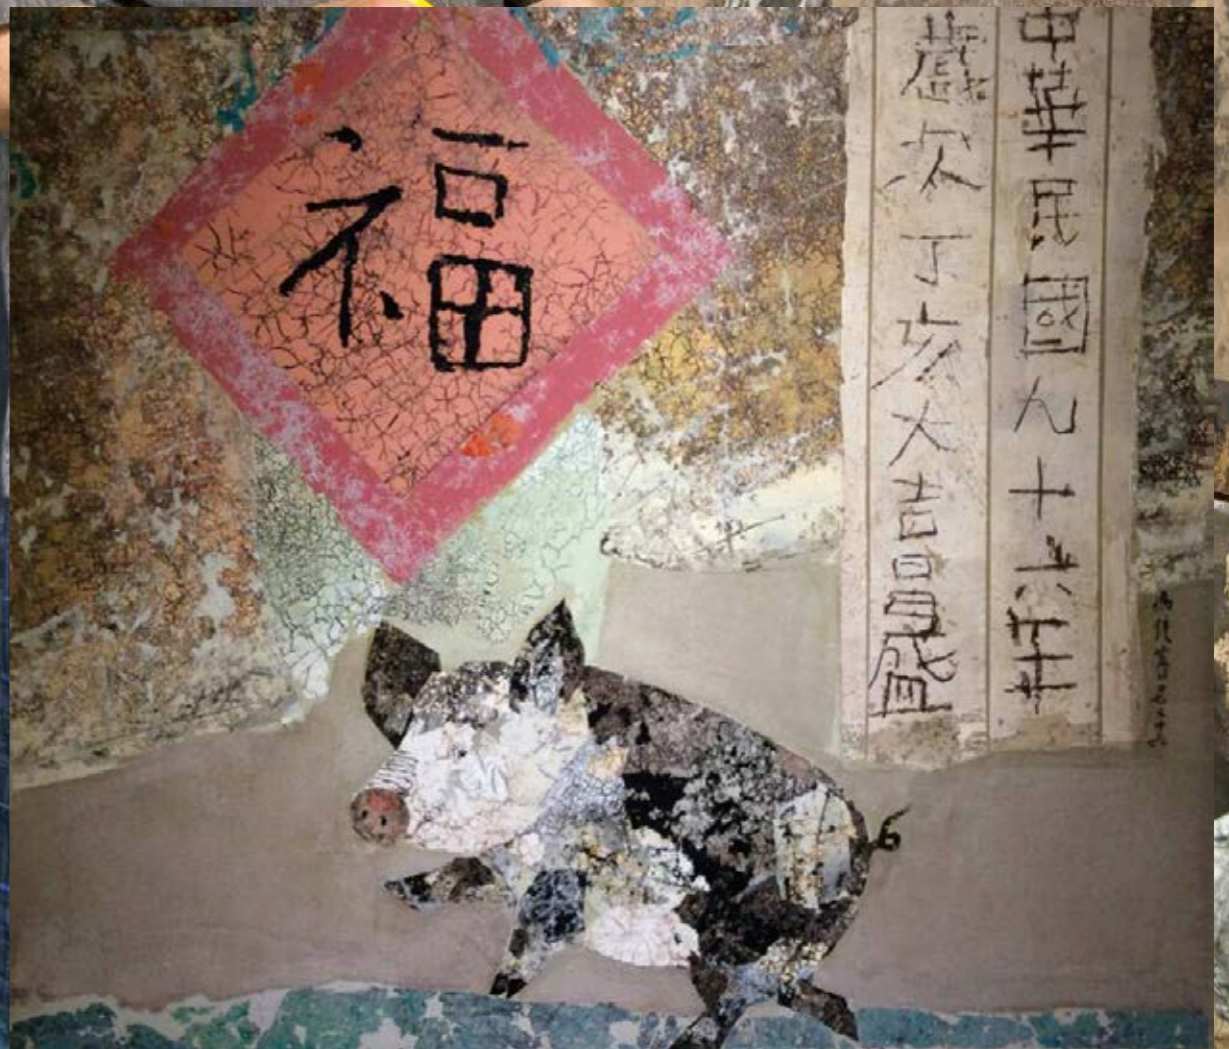 福
中華民國九十六年
歲次丁亥大吉昌盛